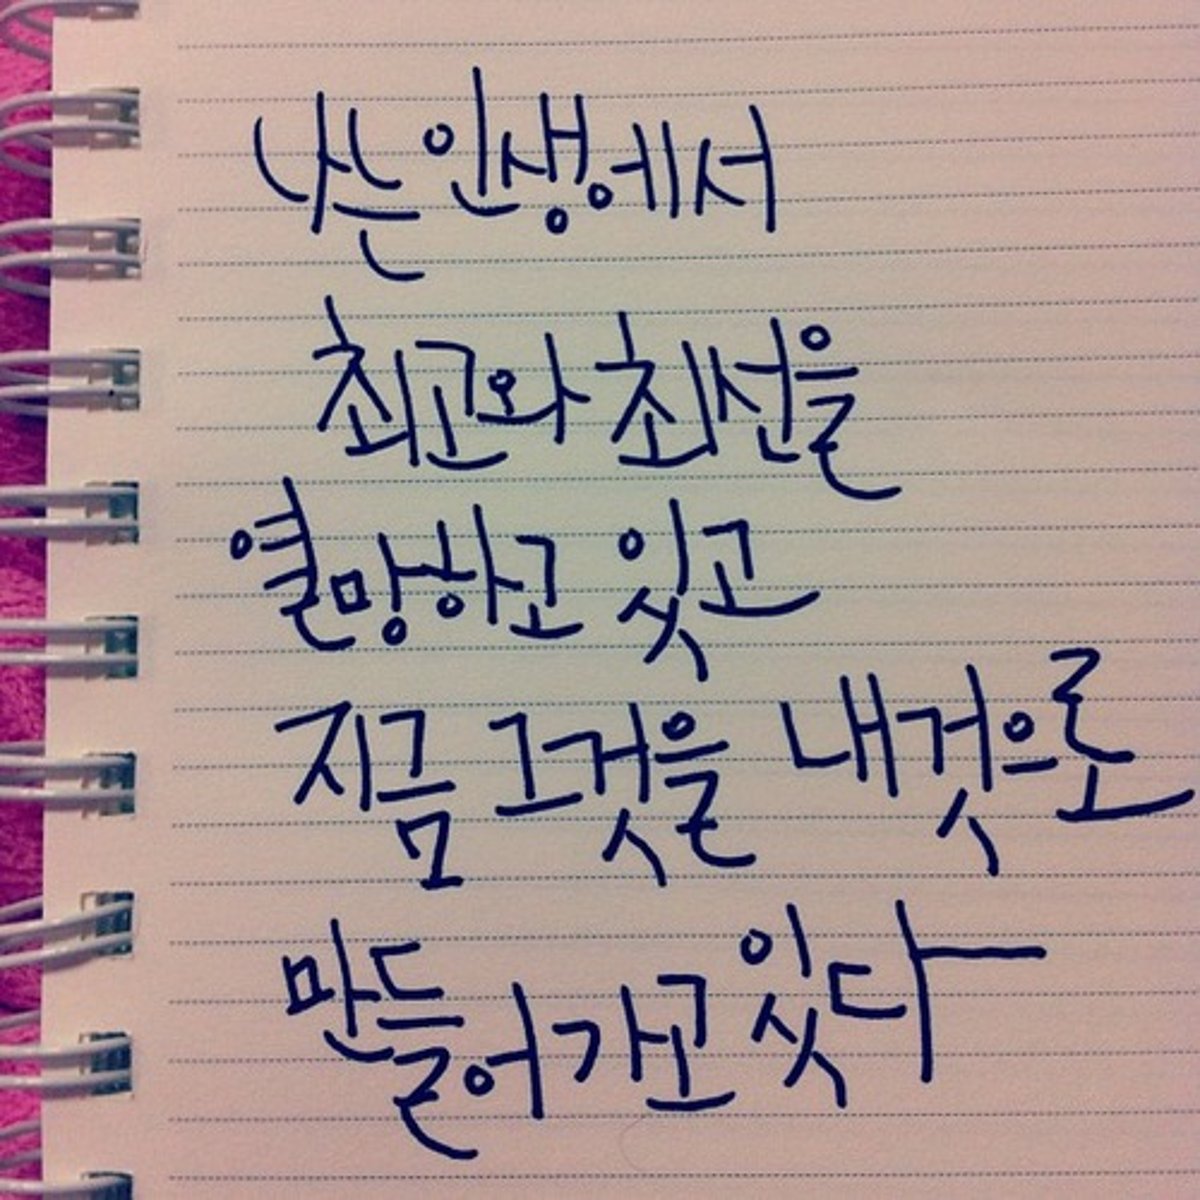 나는 인생에서
최고와 최선을
열망하고 잇고
지금 그것을 내것으로
만들어 가고 잇다